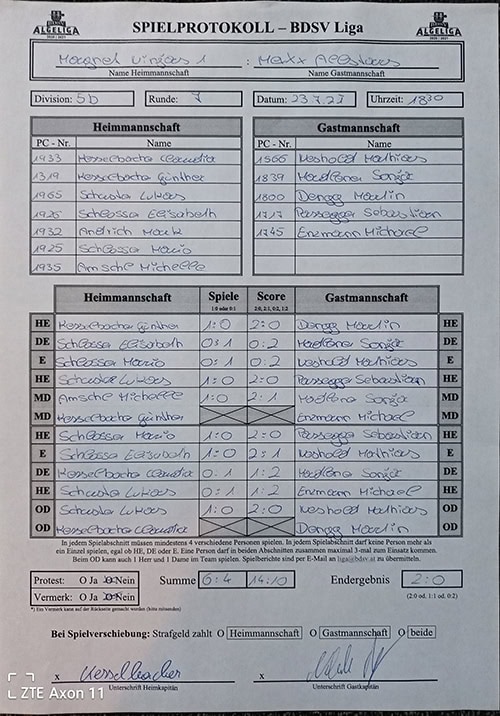 ALGELIGA
SPIELPROTOKOLL – BDSV Liga
ALGELIGA
: Maxx
Name Heimmannschaft Name Gastmannschaft
Division: 5b Runde: 7 Datum: 23.7.23 Uhrzeit: 1830
Heimmannschaft Gastmannschaft
PC - Nr. Name PC - Nr. Name
1933 Kesselbacher Claudia 1566 Neshold Mathias
1319 Kesselbacher Günther 1839 Sonja
1965 Schuster Lukas 1800 Martin
1926 Schlosser Elisabeth 1717 Passegger Sebastian
1932 Andrich Mark 1745 Enzmann Michael
1925 Schlosser Mario
1935 Amschl Michelle
Heimmannschaft Spiele Score Gastmannschaft
1:0 oder 0:1 2:0, 2:1, 0:2, 1:2
HE Kesselbacher Günther 1:0 2:0 Martin HE
DE Schlosser Elisabeth 0:1 0:2 Sonja DE
E Schlosser Mario 0:1 0:2 Neshold Mathias E
HE Schuster Lukas 1:0 2:0 Passegger Sebastian HE
MD Amschl Michelle 1:0 2:1 Sonja MD
MD Kesselbacher Günther Enzmann Michael MD
HE Schlosser Mario 1:0 2:0 Passegger Sebastian HE
E Schlosser Elisabeth 1:0 2:1 Neshold Mathias E
DE Kesselbacher Claudia 0:1 1:2 Sonja DE
HE Schuster Lukas 0:1 1:2 Enzmann Michael HE
OD Schuster Lukas 1:0 2:0 Neshold Mathias OD
OD Kesselbacher Claudia Martin OD
In jedem Spielabschnitt müssen mindestens 4 verschiedene Personen spielen. In jedem Spielabschnitt darf keine Person mehr als
ein Einzel spielen, egal ob HE, DE oder E. Eine Person darf in beiden Abschnitten zusammen maximal 3-mal zum Einsatz kommen.
Beim OD kann auch 1 Herr und 1 Dame im Team spielen. Spielberichte sind per E-Mail an liga@bdsv.at zu übermitteln.
Protest: O Ja O Nein Summe 6:4 14:10 Endergebnis 2:0
Vermerk: O Ja O Nein (2:0 od. 1:1 od. 0:2)
*) Ein Vermerk kann auf der Rückseite gemacht werden (bitte mitsenden)
Bei Spielverschiebung: Strafgeld zahlt O Heimmannschaft O Gastmannschaft O beide
x Kesselbacher x
Unterschrift Heimkapitän Unterschrift Gastkapitän
ZTE Axon 11